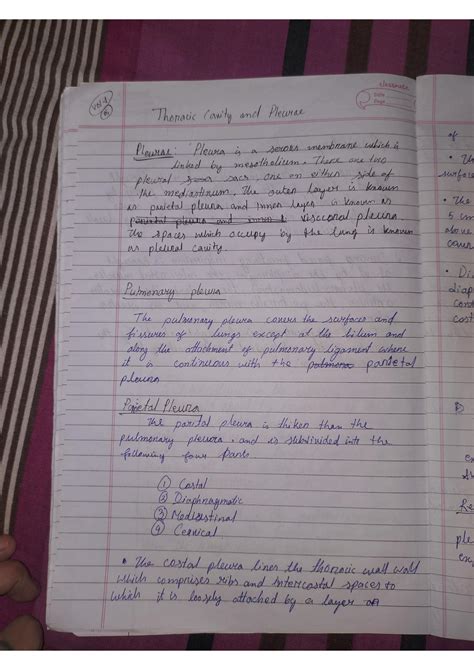 classmate
Date
Page
Thoracic Cavity and Pleurae
Pleurae: Pleura is a serous membrane which is
linked by mesothelium. There are two
pleural sacs, one on either side of
the mediastinum. The outer layer is known
as parietal pleura and inner layer is known as
parietal pleura and inner visceral pleura.
The spaces which occupy by the lung is known
as pleural cavity.
Pulmonary pleura
The pulmonary pleura covers the surfaces and
fissures of lungs except at the hilum and
along the attachment of pulmonary ligament where
it is continuous with the pulmona parietal
pleura
Parietal Pleura
The parital pleura is thicken than the
pulmonary pleura, and is subdivided into the
following four parts.
① Costal
② Diaphragmatic
③ Mediastinal
④ Cervical
• The costal pleura lines the thoracic wall wall
which comprises ribs and intercostal spaces to
which it is loosely attached by a layer of
of
surface
• The
5 cm
above
• Dia
diap
cont
cost